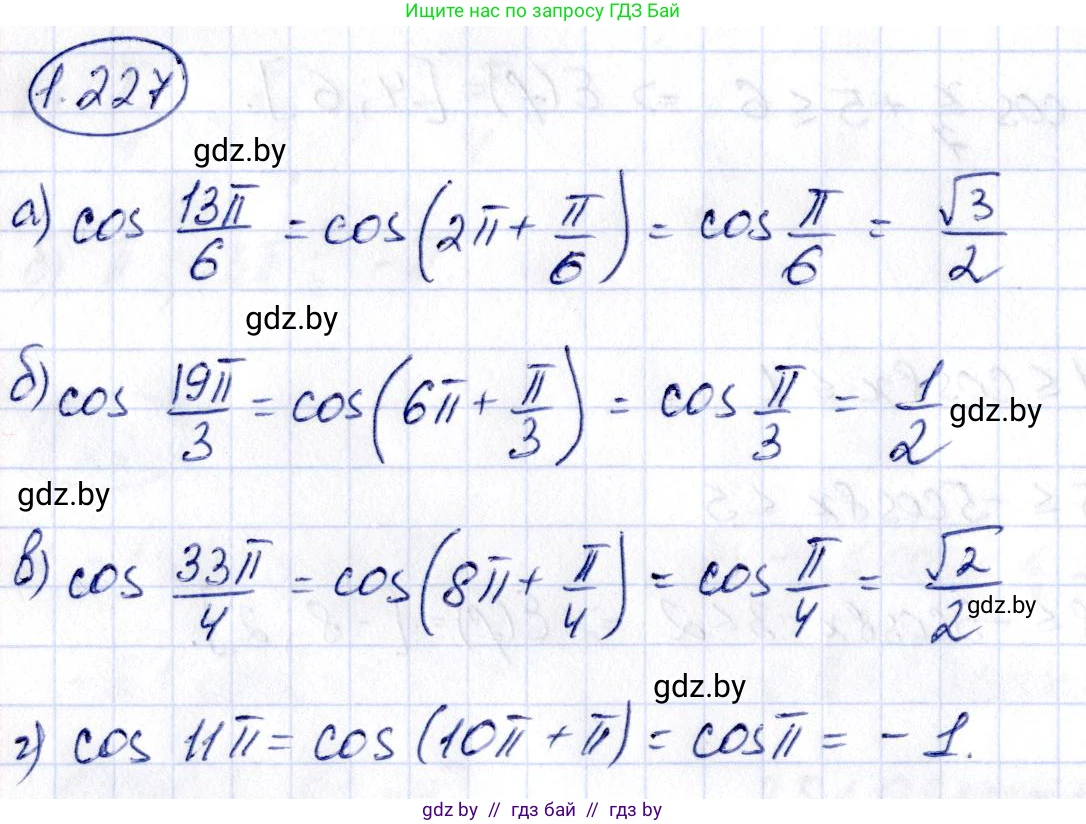 Ищите нас по запросу ГДЗ Бай
1.227
gdz.by
а) cos 13π/6 = cos(2π + π/6) = cos π/6 = √3/2
gdz.by
б) cos 19π/3 = cos(6π + π/3) = cos π/3 = 1/2
gdz.by
gdz.by
в) cos 33π/4 = cos(8π + π/4) = cos π/4 = √2/2
gdz.by
gdz.by
г) cos 11π = cos(10π + π) = cosπ = -1.
gdz.by // гдз бай // гдз by